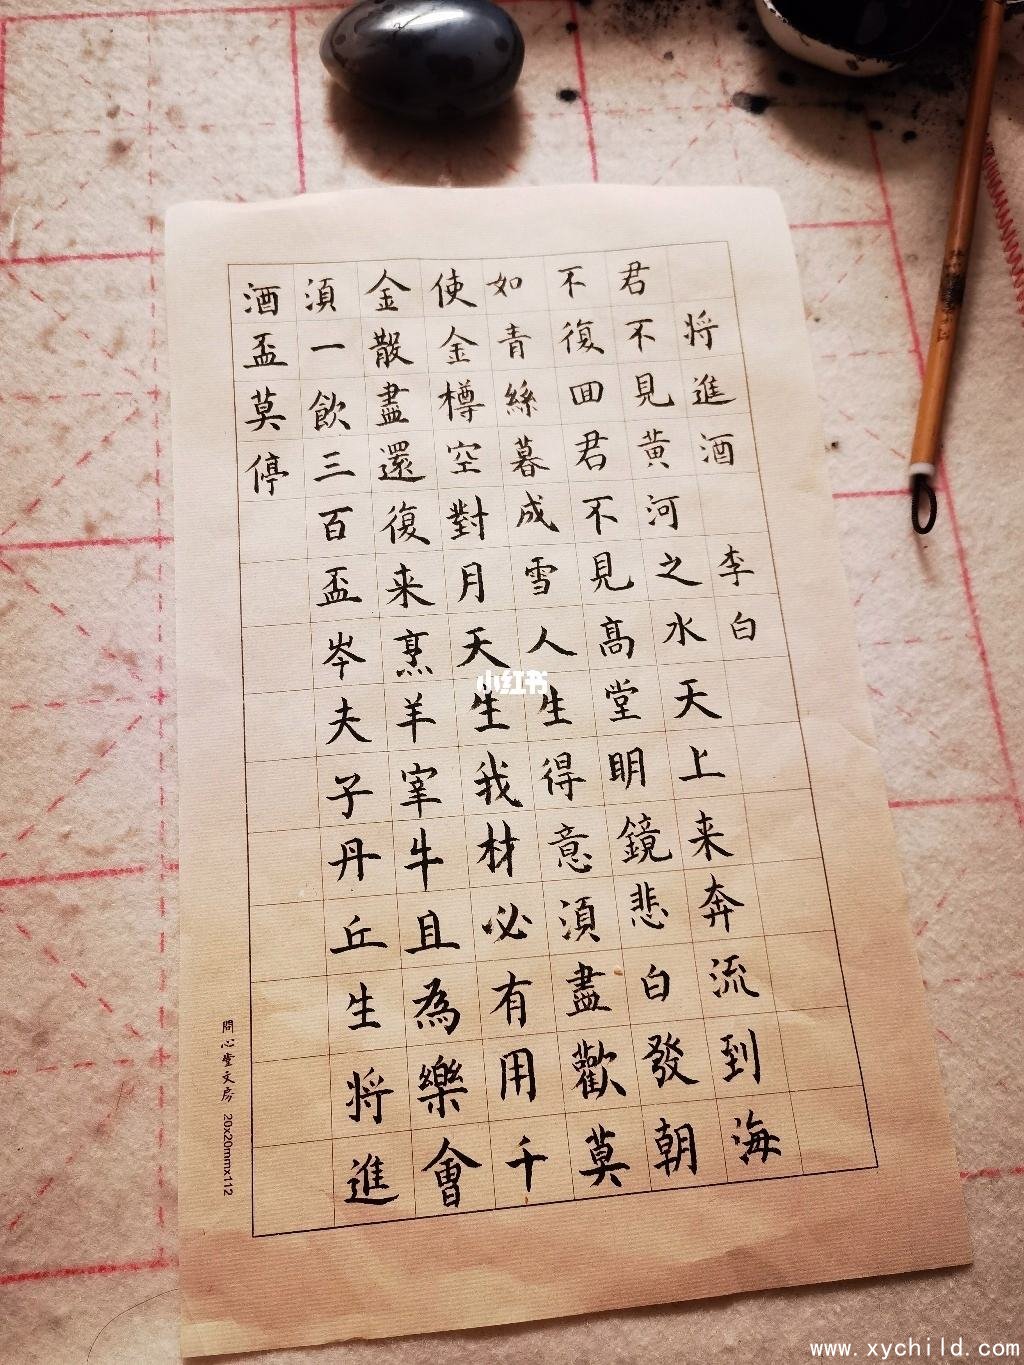 将進酒 李白
君不見黄河之水天上来奔流到海
不復囬君不見髙堂明鏡悲白發朝
如青絲暮成雪人生得意湏盡歡莫
使金樽空對月天生我材必有用千
金散盡還復来烹羊宰牛且為樂會
湏一飲三百盃岑夫子丹丘生将進
酒盃莫停
問心堂文房 20x20mmx112
小红书
www.xychild.com